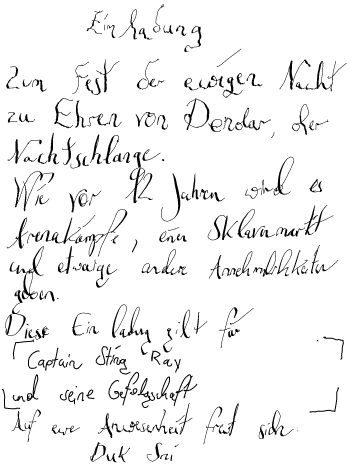 Einladung
Zum Fest der ewigen Nacht
zu Ehren von Dendar, der
Nachtschlange.
Wie vor 12 Jahren wird es
Arenakämpfe, einen Sklavenmarkt
und etwaige andere Annehmlichkeiten
geben.
Diese Einladung gilt für
Captain Sting Ray
und seine Gefolgschaft
Auf eure Anwesenheit freut sich
Duk Sri